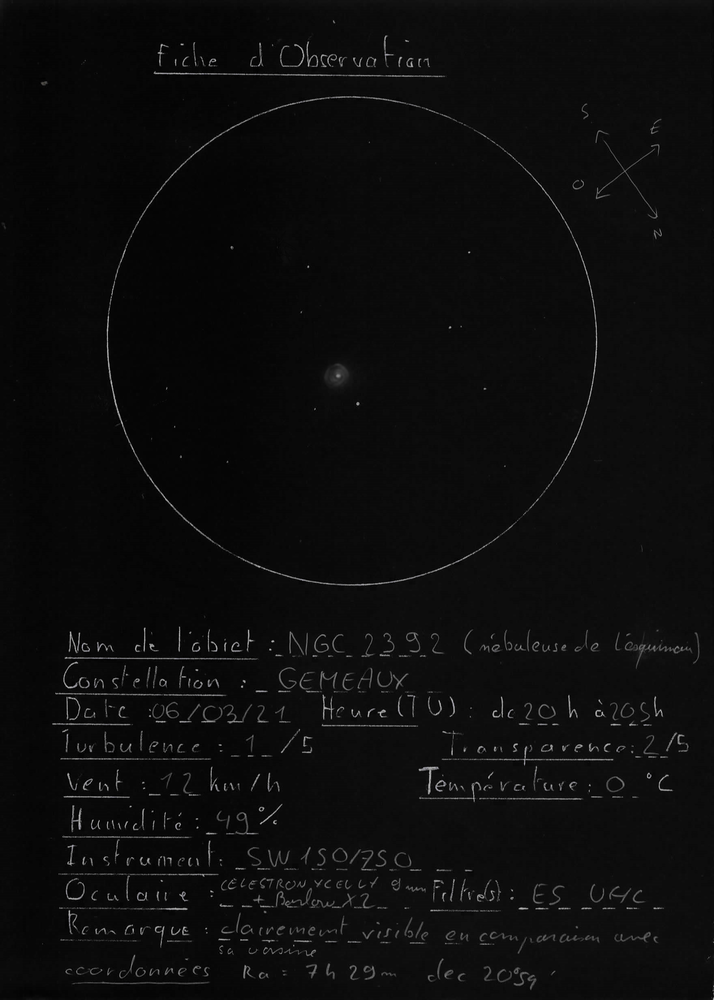 Fiche d'Observation
S
E
O
N
Nom de l'objet : NGC 2392 (nébuleuse de l'esquimau)
Constellation : GEMEAUX
Date : 06/03/21 Heure (TU) : de 20 h à 20 5h
Turbulence : 1 /5 Transparence : 2 /5
Vent : 12 km/h Température : 0 °C
Humidité : 49 %
Instrument : SW 150/750
Oculaire : CELESTRON XCELL LX 9 mm Filtre(s) : ES UHC
+ Barlow X2
Remarque : clairement visible en comparaison avec
sa voisine
coordonnées Ra = 7h 29m dec 20°59'